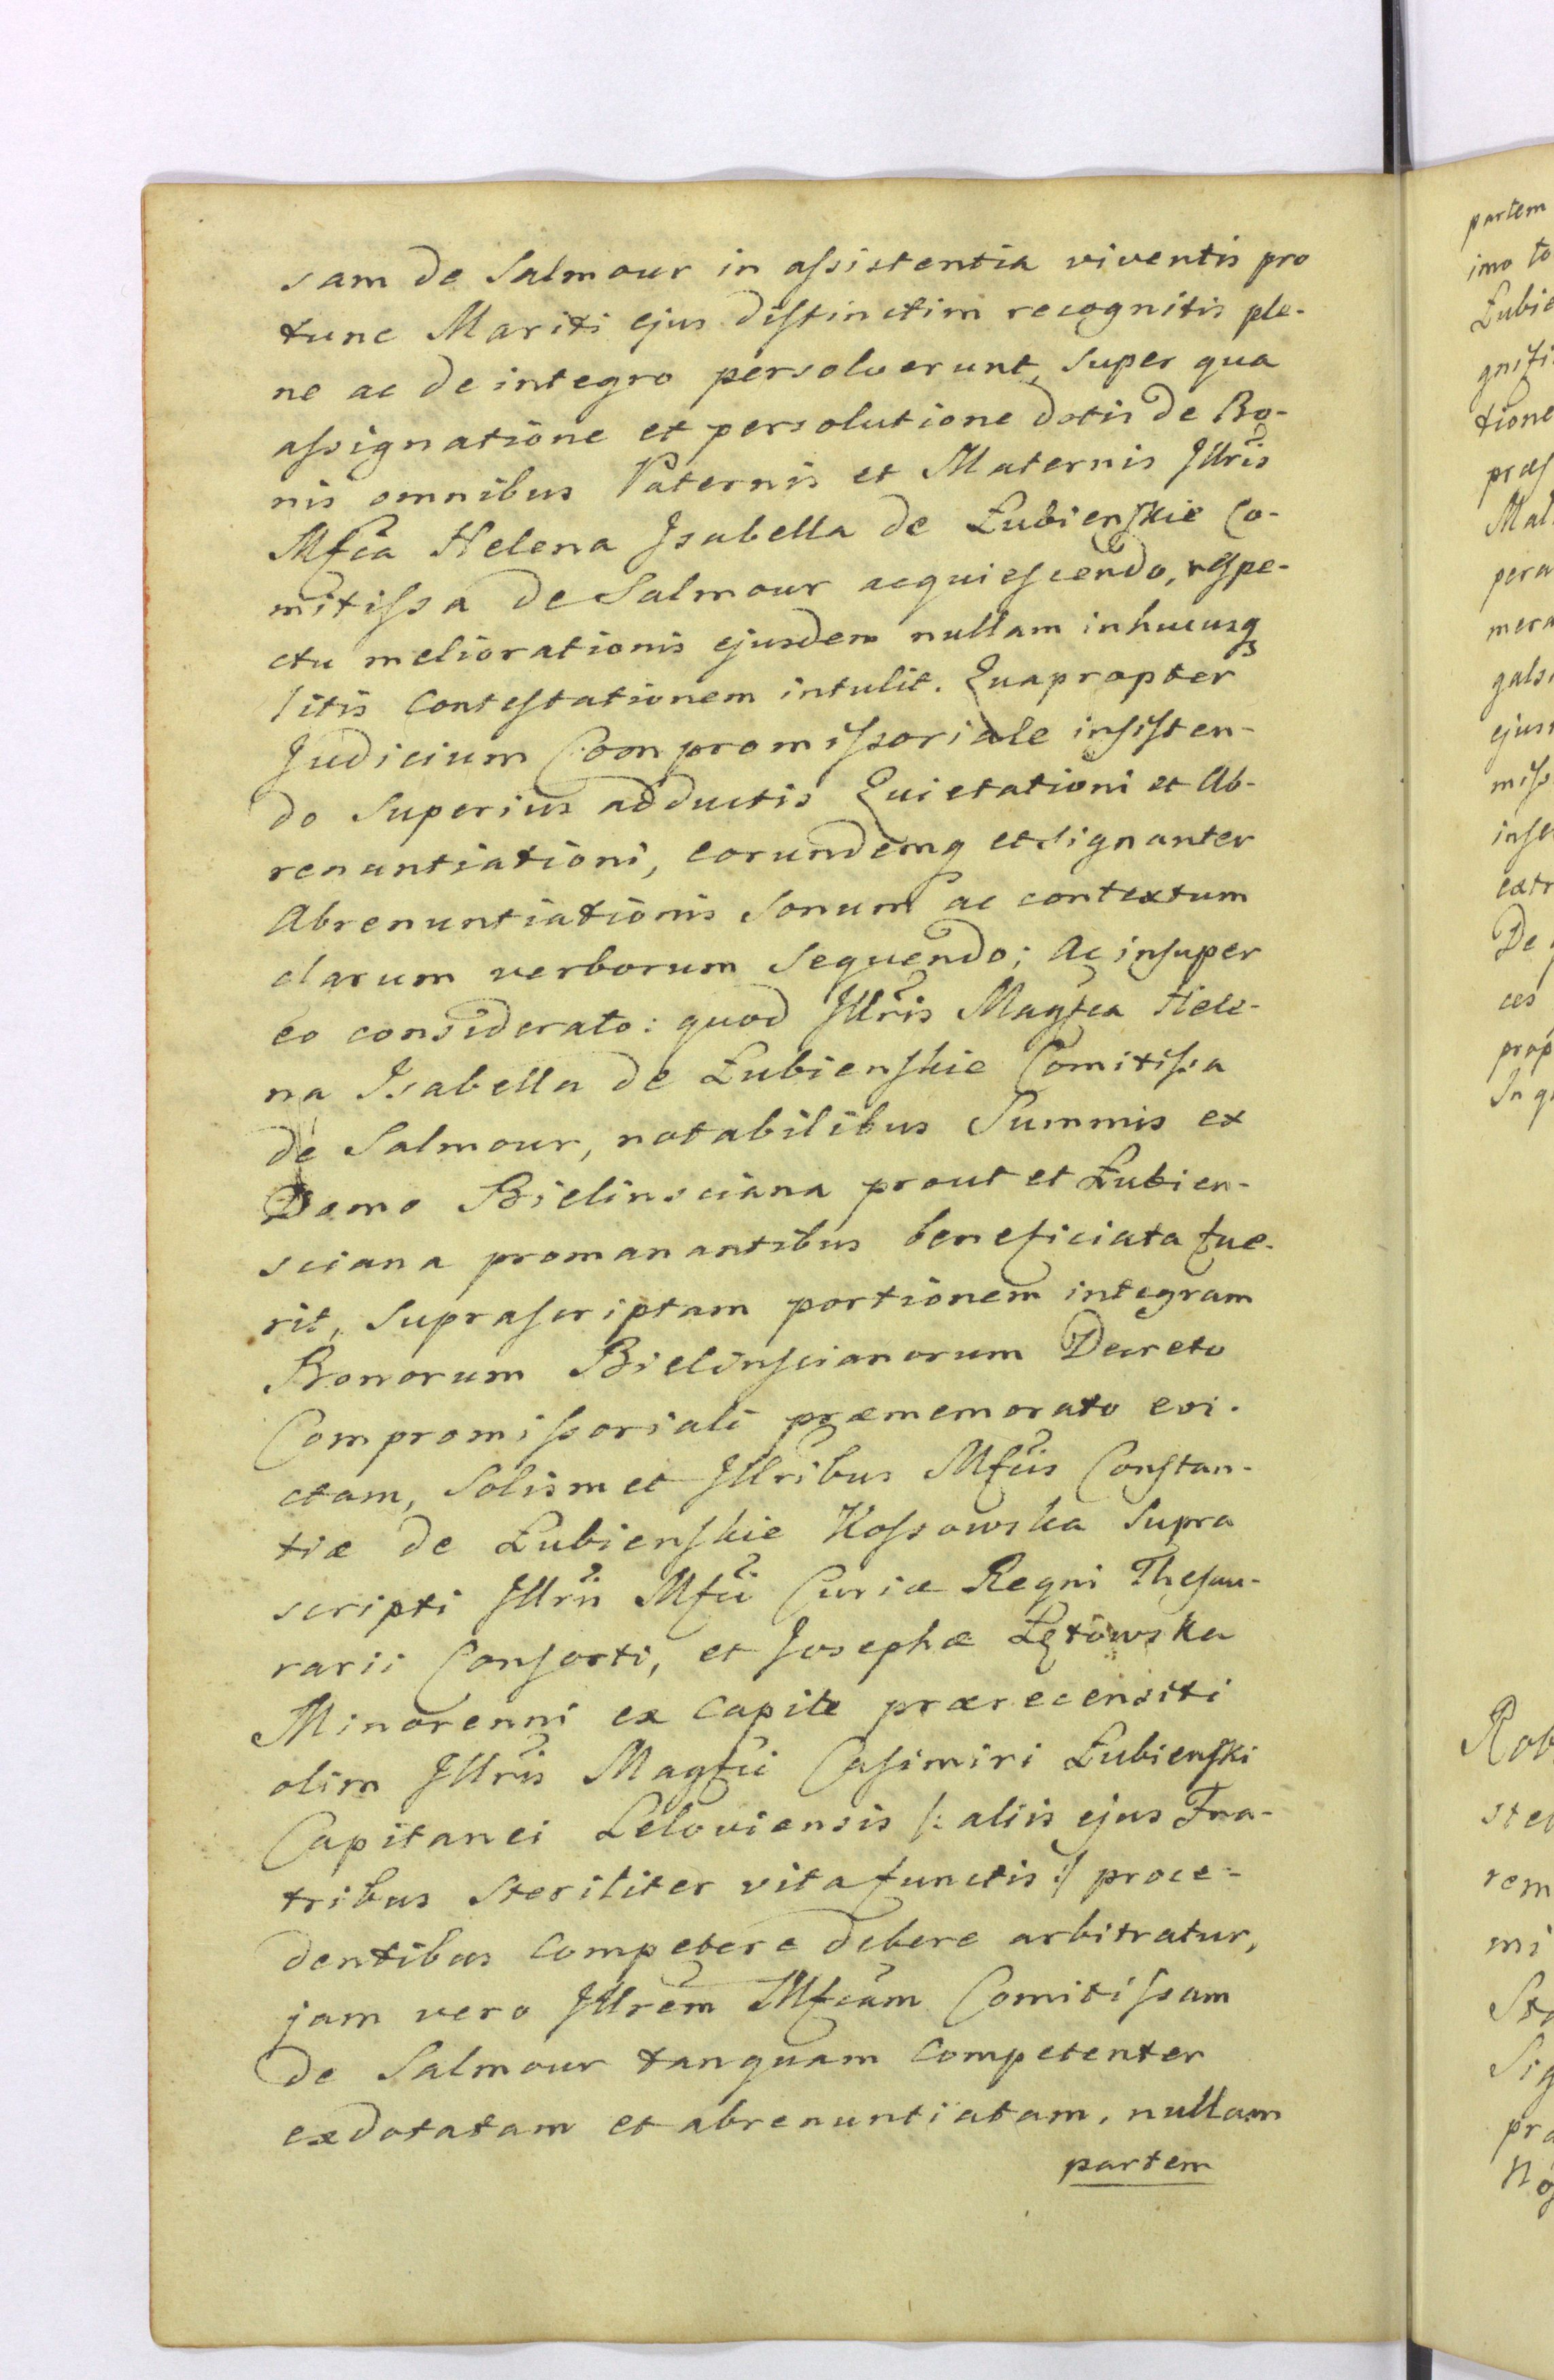 sam de Salmour in assistentia viventis pro
tunc Mariti ejus distinctim recognitis ple-
ne ac de integro persolverunt, super qua
assignatione et persolutione dotis de Bo-
nis omnibus Paternis et Maternis Jllris
Mfca Helena Jsabella de Łubienskie Co-
mitissa de Salmour acquiescendo, respe-
ctu meliorationis ejusdem nullam inhucusq
litis Contestationem intulit. Quapropter
Judicium Compromissoriale insisten-
do superius adductis Quietationi et Ab-
renuntiationi, eorundemq et signanter
Abrenuntiationis sonum ac contextum
clarum verborum sequendo; Ac insuper
eo considerato: quod Jllris Magfca Hele-
na Jsabella de Łubienskie Comitissa
de Salmour, notabilibus Summis ex
Domo Bielinsciana prout et Łubien-
sciana promanantibus beneficiata fue-
rit, suprascriptam portionem integram
Bonorum Bielinscianorum Decreto
Compromissoriali præmemorato evi-
ctam, solismet Jllribus Mfcis Constan-
tiæ de Łubienskie Kossowska supra
scripti Jllris Mfci Curiæ Regni Thesau-
rarii Consorti, et Josephæ Łętowska
Minorenni ex Capite prærecensiti
olim Jllris Magfci Casimiri Łubienski
Capitanei Leloviensis /: aliis ejus Fra-
tribus steriliter vita functis :/ proce-
dentibus Competere debere arbitratur,
jam vero Jllrem Mfcam Comitissam
de Salmour tanquam Competenter
exdotatam et abrenuntiatam, nullam
partem
partem
imo to
Łubie
gnifi
tione
præs
Mal
pera
mera
gals
ejus
miss
inse
extr
De
ces
prop
Jn q
Rob
ste
rem
mi
Sta
Sig
pra